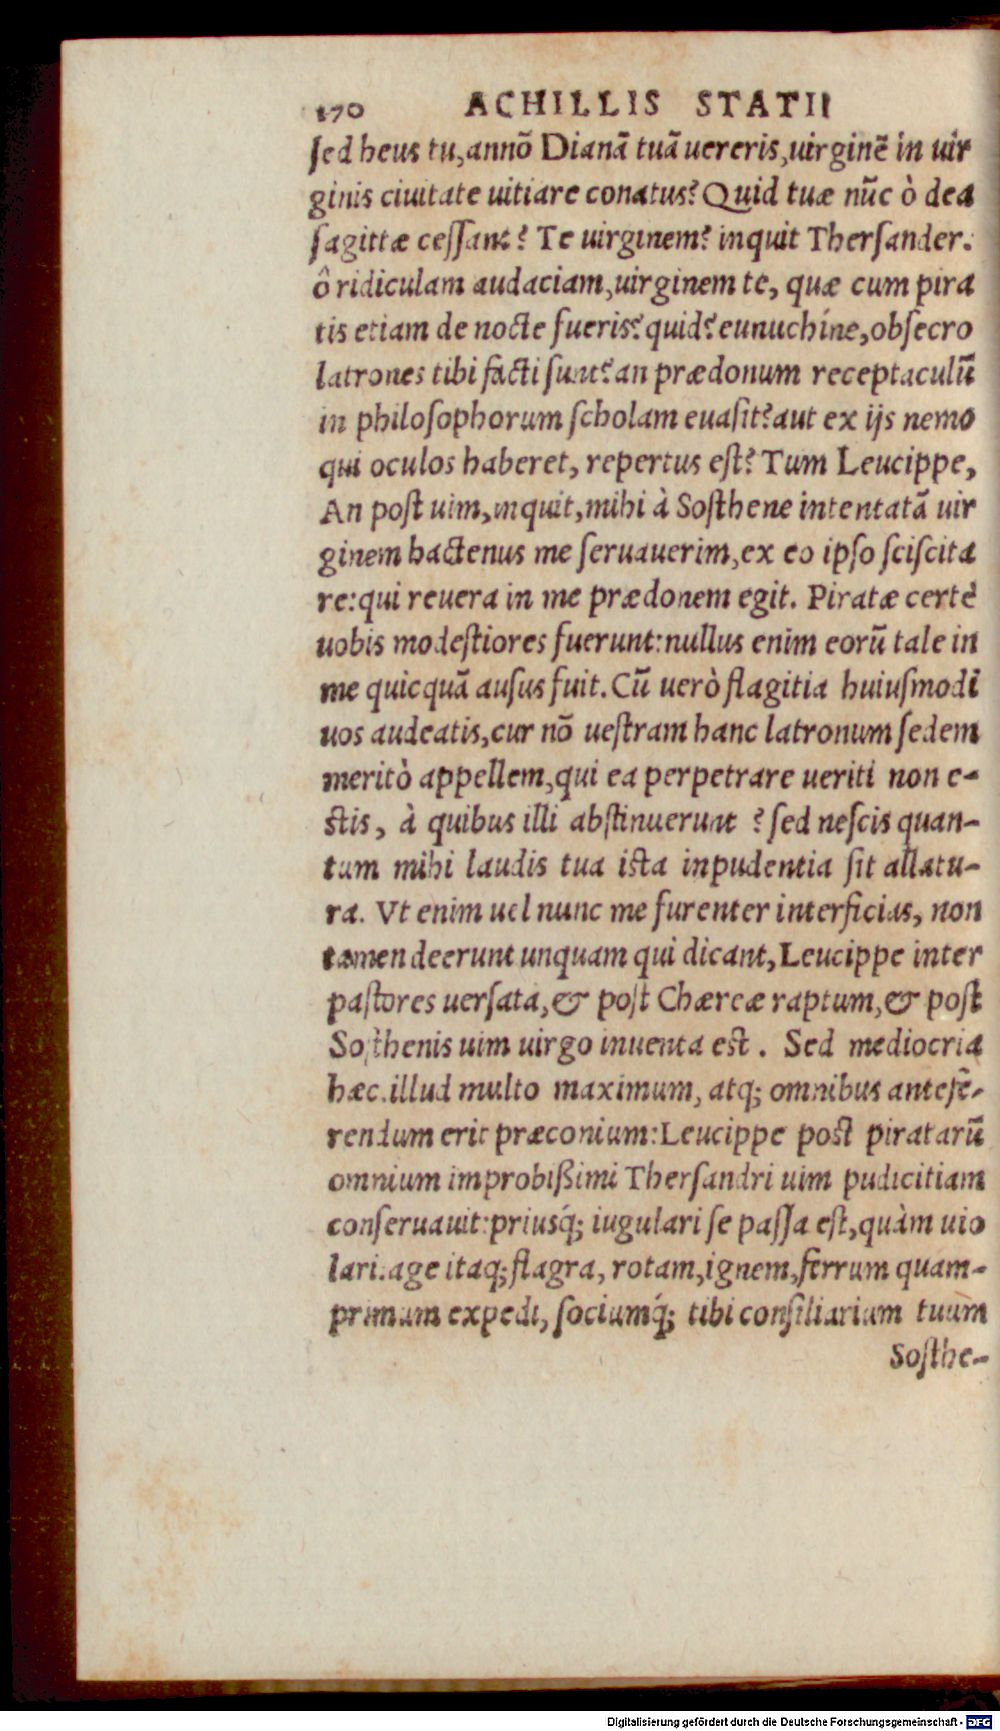 170 ACHILLIS STATII
sed heus tu, annõ Dianã tuã uereris, uirginẽ in uir
ginis ciuitate uitiare conatus? Quid tuæ nũc ò dea
sagittæ cessant? Te uirginem? inquit Thersander.
ô ridiculam audaciam, uirginem te, quæ cum pira
tis etiam de nocte fueris? quid? eunuchíne, obsecro
latrones tibi facti sunt? an prædonum receptaculũ
in philosophorum scholam euasit? aut ex ijs nemo
qui oculos haberet, repertus est? Tum Leucippe,
An post uim, inquit, mihi à Sosthene intentatã uir
ginem hactenus me seruauerim, ex eo ipso sciscita
re: qui reuera in me prædonem egit. Piratæ certè
uobis modestiores fuerunt: nullus enim eorũ tale in
me quicquã ausus fuit. Cũ uerò flagitia huiusmodi
uos audeatis, cur nõ uestram hanc latronum sedem
meritò appellem, qui ea perpetrare ueriti non e-
stis, à quibus illi abstinuerunt? sed nescis quan-
tum mihi laudis tua ista inpudentia sit allatu-
ra. Vt enim uel nunc me furenter interficias, non
tamen deerunt unquam qui dicant, Leucippe inter
pastores uersata, & post Chæreæ raptum, & post
Sosthenis uim uirgo inuenta est. Sed mediocria
hæc. illud multo maximum, atq; omnibus antefẽ-
rendum erit præconium: Leucippe post piratarũ
omnium improbißimi Thersandri uim pudicitiam
conseruauit: priusq́; iugulari se passa est, quàm uio
lari. age itaq; flagra, rotam, ignem, ferrum quam-
primum expedi, sociumq́; tibi consiliarium tuum
Sosthe-
Digitalisierung gefördert durch die Deutsche Forschungsgemeinschaft - DFG